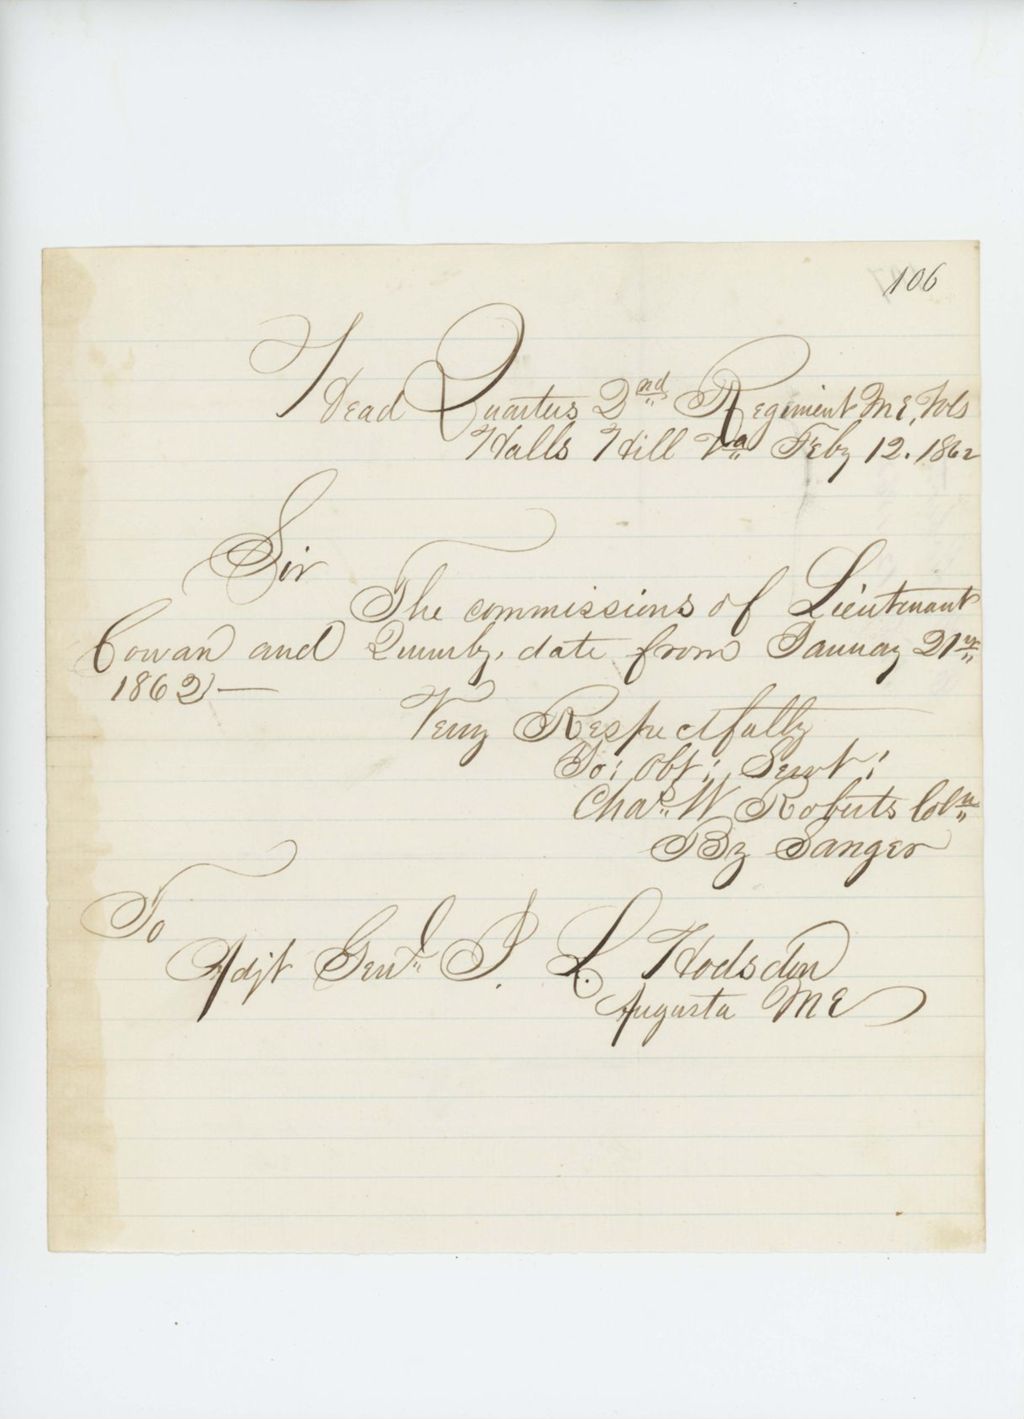 106
Head Quarters 2nd Regiment ME, Vols
Halls Hill Va Feby 12. 1862
Sir
The commissions of Lieutenant
Cowan and Quimby, date from January 21st
1862 —
Very Respectfully
Yo; Obt; Servt;
Chas. W Roberts Coln
By Sanger
To
Adjt Genl J. L. Hodsdon
Augusta ME